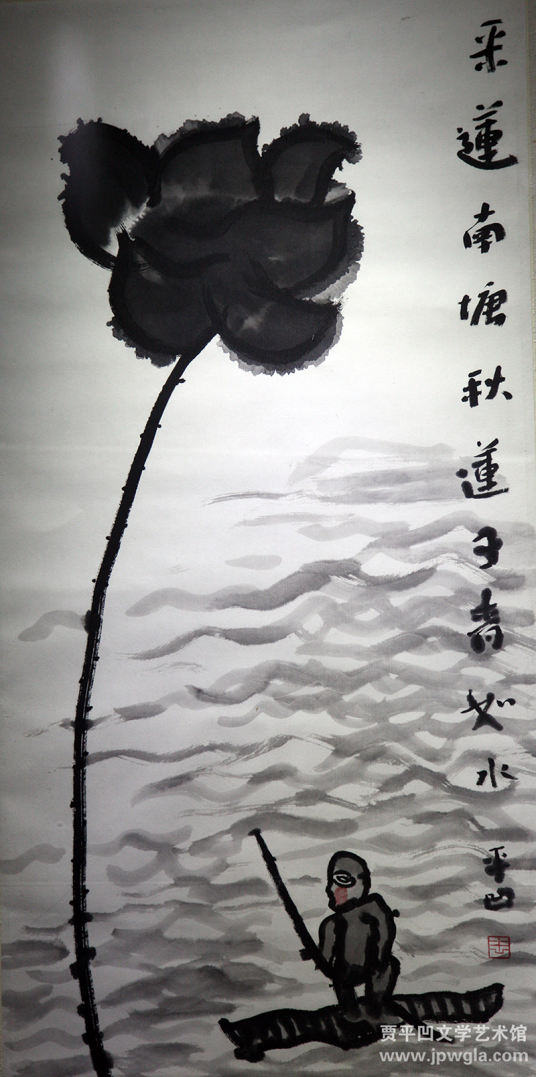 采蓮南塘秋蓮子青如水
平凹
贾平凹文学艺术馆
www.jpwgla.com